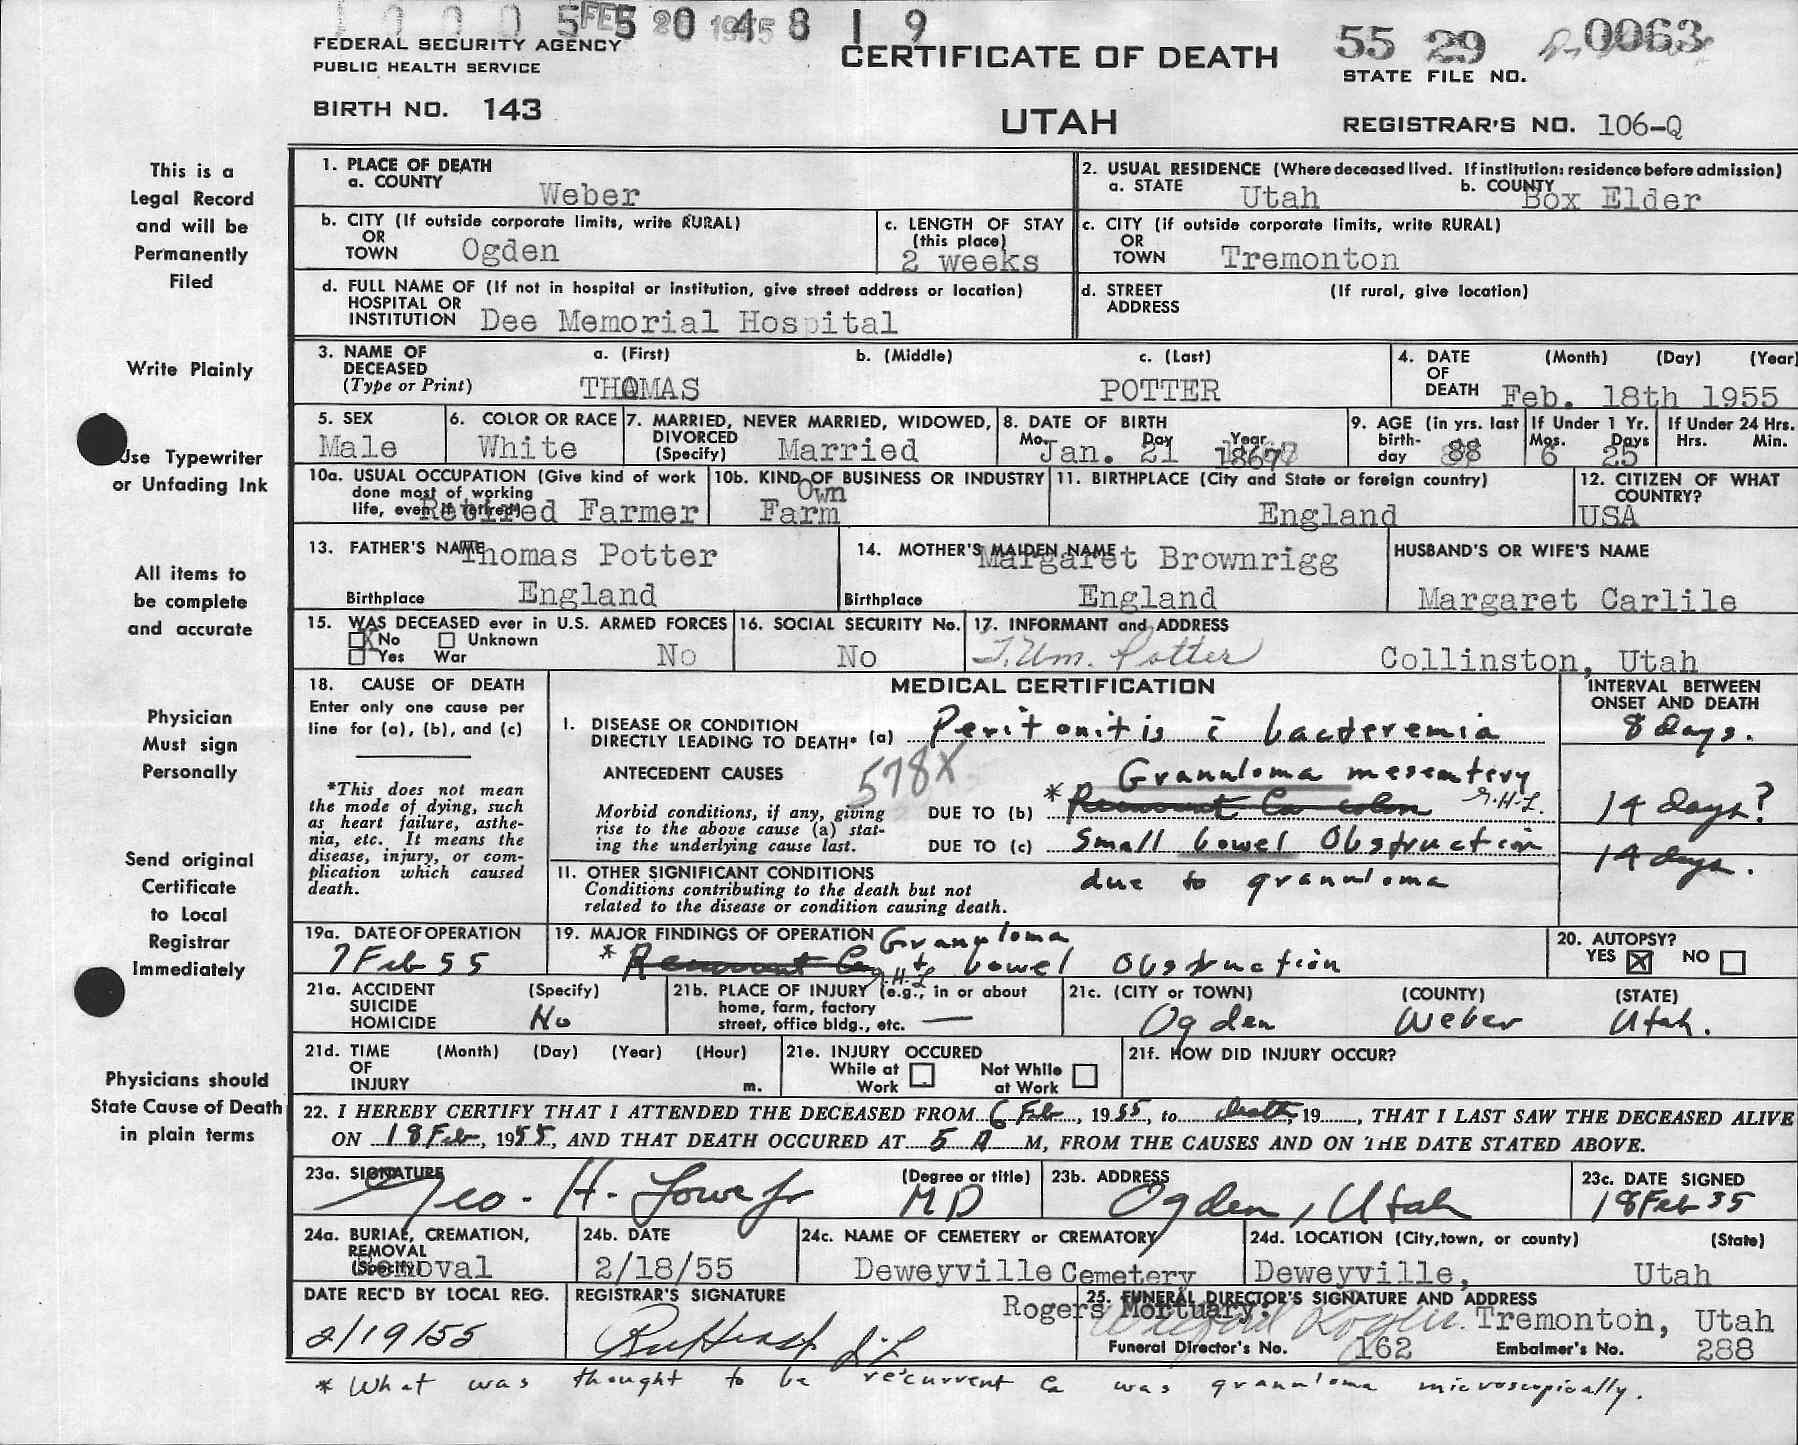 5 FEB 20 1955 5 0 4 8 1 9
FEDERAL SECURITY AGENCY
PUBLIC HEALTH SERVICE
CERTIFICATE OF DEATH
55 29 0063
STATE FILE NO.
BIRTH NO. 143
UTAH
REGISTRAR'S NO. 106-Q
This is a
Legal Record
and will be
Permanently
Filed
Write Plainly
Use Typewriter
or Unfading Ink
All items to
be complete
and accurate
Physician
Must sign
Personally
Send original
Certificate
to Local
Registrar
Immediately
Physicians should
State Cause of Death
in plain terms
1. PLACE OF DEATH
a. COUNTY Weber
2. USUAL RESIDENCE (Where deceased lived. If institution: residence before admission)
a. STATE Utah b. COUNTY Box Elder
b. CITY (If outside corporate limits, write RURAL)
OR
TOWN Ogden
c. LENGTH OF STAY
(this place)
2 weeks
c. CITY (if outside corporate limits, write RURAL)
OR
TOWN Tremonton
d. FULL NAME OF (If not in hospital or institution, give street address or location)
HOSPITAL OR
INSTITUTION Dee Memorial Hospital
d. STREET (If rural, give location)
ADDRESS
3. NAME OF DECEASED (Type or Print)
a. (First) b. (Middle) c. (Last)
THOMAS POTTER
4. DATE OF DEATH (Month) (Day) (Year)
Feb. 18th 1955
5. SEX
Male
6. COLOR OR RACE
White
7. MARRIED, NEVER MARRIED, WIDOWED,
DIVORCED
(Specify) Married
8. DATE OF BIRTH
Mo. Day Year
Jan. 21 1867
9. AGE (in yrs. last
birth-
day 88
If Under 1 Yr.
Mos. Days
6 25
If Under 24 Hrs.
Hrs. Min.
10a. USUAL OCCUPATION (Give kind of work
done most of working
life, even if retired)
Retired Farmer
10b. KIND OF BUSINESS OR INDUSTRY
Own
Farm
11. BIRTHPLACE (City and State or foreign country)
England
12. CITIZEN OF WHAT
COUNTRY?
USA
13. FATHER'S NAME Thomas Potter
Birthplace England
14. MOTHER'S MAIDEN NAME Margaret Brownrigg
Birthplace England
HUSBAND'S OR WIFE'S NAME
Margaret Carlile
15. WAS DECEASED ever in U.S. ARMED FORCES
X No Unknown
Yes War No
16. SOCIAL SECURITY No.
No
17. INFORMANT and ADDRESS
T. Wm. Potter Collinston, Utah
18. CAUSE OF DEATH
Enter only one cause per
line for (a), (b), and (c)
*This does not mean
the mode of dying, such
as heart failure, asthe-
nia, etc. It means the
disease, injury, or com-
plication which caused
death.
MEDICAL CERTIFICATION
INTERVAL BETWEEN
ONSET AND DEATH
I. DISEASE OR CONDITION
DIRECTLY LEADING TO DEATH* (a) Peritonitis c̄ bacteremia
8 days.
ANTECEDENT CAUSES
578X
Granuloma mesentery
Morbid conditions, if any, giving
rise to the above cause (a) stat-
ing the underlying cause last.
DUE TO (b) * Recurrent Ca colon G.H.L.
14 days?
DUE TO (c) Small bowel Obstruction
14 days.
II. OTHER SIGNIFICANT CONDITIONS
Conditions contributing to the death but not
related to the disease or condition causing death.
due to granuloma
19a. DATE OF OPERATION
7 Feb 55
19. MAJOR FINDINGS OF OPERATION Granuloma
* Recurrent Ca + bowel Obstruction
G.H.L
20. AUTOPSY?
YES X NO
21a. ACCIDENT (Specify)
SUICIDE
HOMICIDE No
21b. PLACE OF INJURY (e.g., in or about
home, farm, factory
street, office bldg., etc. —
21c. (CITY or TOWN) (COUNTY) (STATE)
Ogden Weber Utah.
21d. TIME (Month) (Day) (Year) (Hour)
OF
INJURY m.
21e. INJURY OCCURED
While at
Work
Not While
at Work
21f. HOW DID INJURY OCCUR?
22. I HEREBY CERTIFY THAT I ATTENDED THE DECEASED FROM 6 Feb, 1955, to death, 19....., THAT I LAST SAW THE DECEASED ALIVE
ON 18 Feb, 1955, AND THAT DEATH OCCURED AT 5 A M, FROM THE CAUSES AND ON THE DATE STATED ABOVE.
23a. SIGNATURE (Degree or title)
Geo. H. Lowe Jr MD
23b. ADDRESS
Ogden, Utah
23c. DATE SIGNED
18 Feb 55
24a. BURIAL, CREMATION,
REMOVAL
(Specify) Removal
24b. DATE
2/18/55
24c. NAME OF CEMETERY or CREMATORY
Deweyville Cemetery
24d. LOCATION (City, town, or county) (State)
Deweyville, Utah
DATE REC'D BY LOCAL REG.
2/19/55
REGISTRAR'S SIGNATURE
25. FUNERAL DIRECTOR'S SIGNATURE AND ADDRESS
Rogers Mortuary: Tremonton, Utah
Funeral Director's No. 162 Embalmer's No. 288
* What was thought to be recurrent Ca was granuloma microscopically.